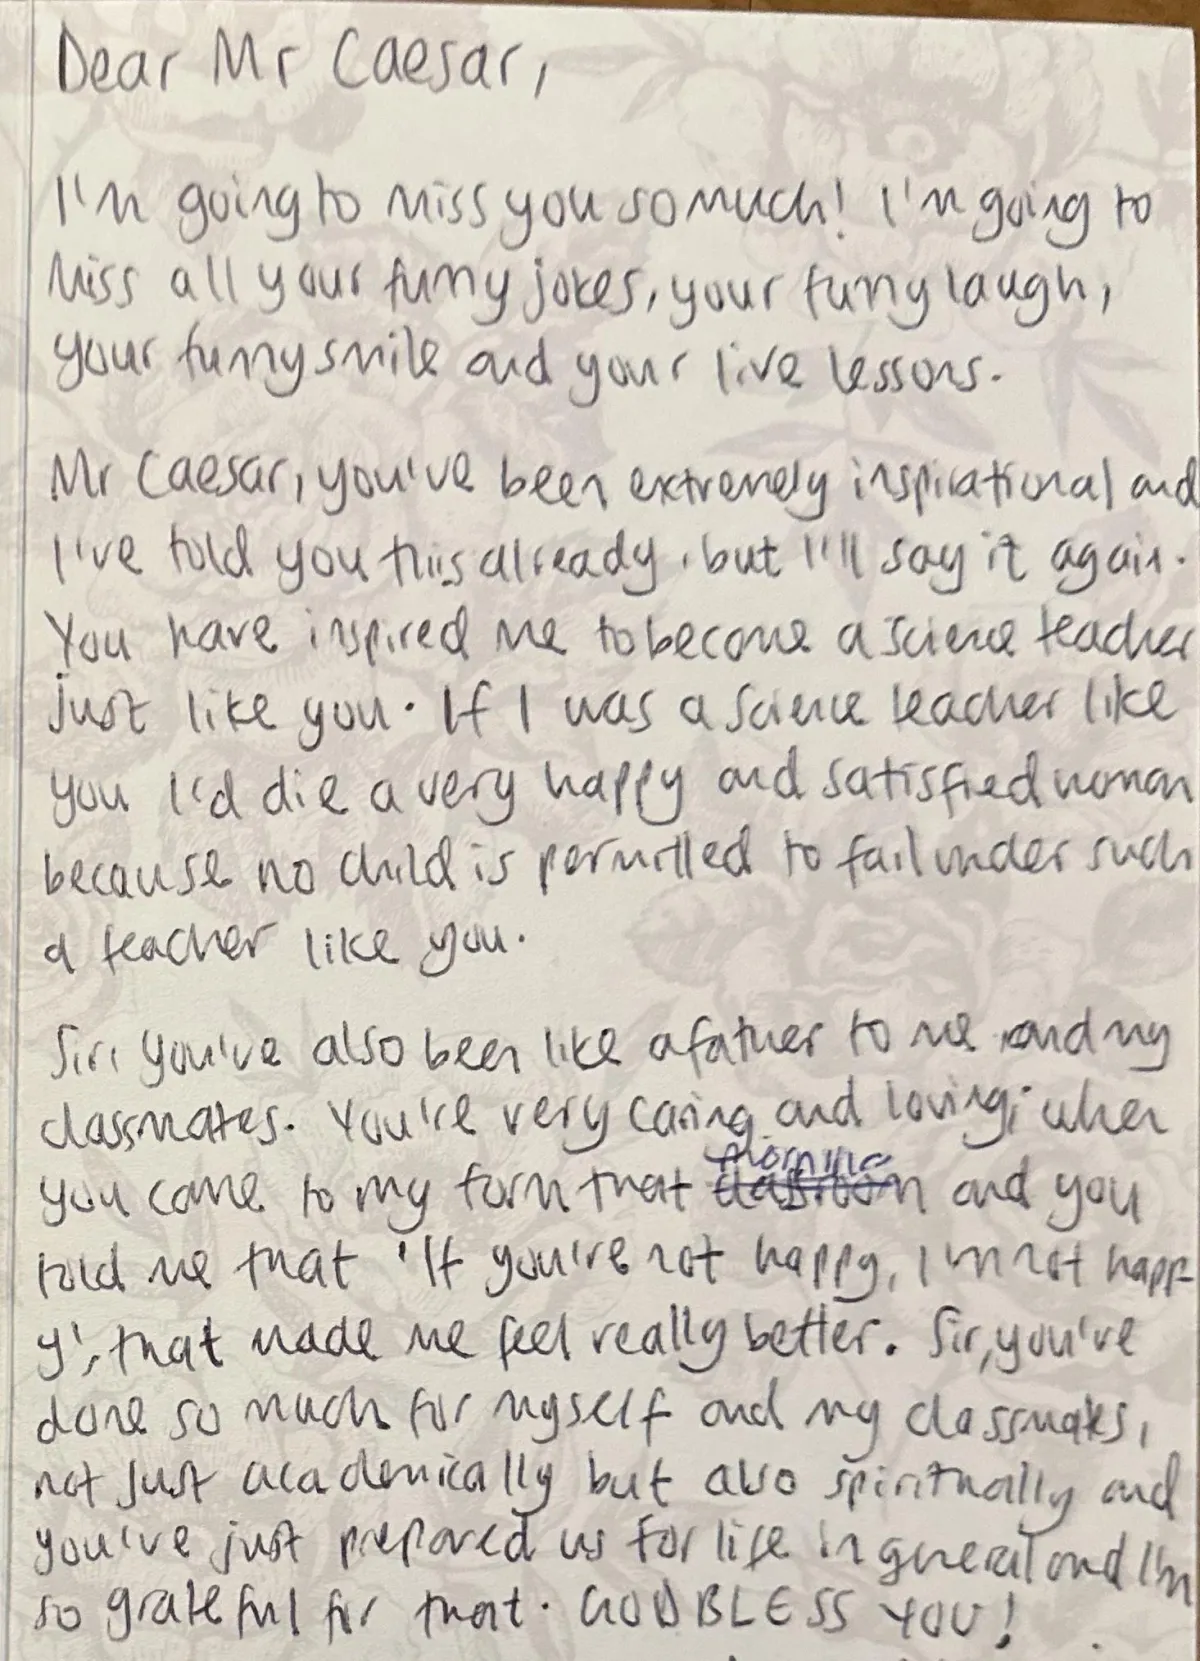 Dear Mr Caesar,
I'm going to miss you so much! I'm going to
miss all your funny jokes, your funny laugh,
your funny smile and your live lessons.
Mr Caesar, you've been extremely inspirational and
I've told you this already, but I'll say it again.
You have inspired me to become a science teacher
just like you. If I was a science teacher like
you I'd die a very happy and satisfied woman
because no child is permitted to fail under such
a teacher like you.
Sir, you've also been like a father to me and my
classmates. You're very caring and loving; when
morning
you came to my form that classroom and you
told me that 'If you're not happy, I'm not happ-
y', that made me feel really better. Sir, you've
done so much for myself and my classmates,
not just academically but also spiritually and
you've just prepared us for life in general and I'm
so grateful for that. GOD BLESS YOU!